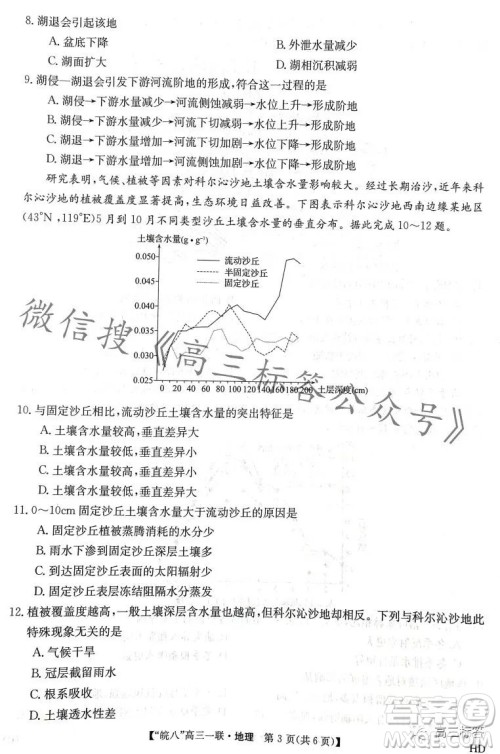 8. 湖退会引起该地
A. 盆底下降
B. 外泄水量减少
C. 湖面扩大
D. 湖相沉积减弱
9. 湖侵—湖退会引发下游河流阶地的形成,符合这一过程的是
A. 湖侵→下游水量减少→河流侧蚀减弱→水位上升→形成阶地
B. 湖侵→下游水量减少→河流下切减弱→水位上升→形成阶地
C. 湖退→下游水量增加→河流侧蚀加剧→水位下降→形成阶地
D. 湖退→下游水量增加→河流下切加剧→水位下降→形成阶地
研究表明,气候、植被等因素对科尔沁沙地土壤含水量影响较大。经过长期治沙,近年来科
尔沁沙地的植被覆盖度显著提高,生态环境日益改善。下图示意科尔沁沙地西南边缘某地区
(43°N,119°E)5月到10月不同类型沙丘土壤含水量的垂直分布。据此完成10~12题。
土壤含水量(g·g⁻¹)
0.050
0.045
0.040
0.035
0.030
0.025
流动沙丘
半固定沙丘
固定沙丘
0 20 40 60 80 100 120 140 160 180 200 土层深度(cm)
10. 与固定沙丘相比,流动沙丘土壤含水量的突出特征是
A. 土壤含水量较高,垂直差异大
B. 土壤含水量较高,垂直差异小
C. 土壤含水量较低,垂直差异小
D. 土壤含水量较低,垂直差异大
11. 0~10cm固定沙丘土壤含水量大于流动沙丘的原因是
A. 固定沙丘植被蒸腾消耗的水分少
B. 雨水下渗到固定沙丘深层的水量多
C. 到达固定沙丘表面的太阳辐射少
D. 固定沙丘表层冻结阻隔水分蒸发
12. 植被覆盖度越高,一般土壤深层含水量也越高,但科尔沁沙地却相反。下列与科尔沁沙地此
特殊现象无关的是
A. 气候干旱
B. 冠层截留雨水
C. 根系吸收
D. 透水性差
“皖八”高三一联·地理 第3页(共6页)
HD
微信搜《高三标答公众号》
高三标答